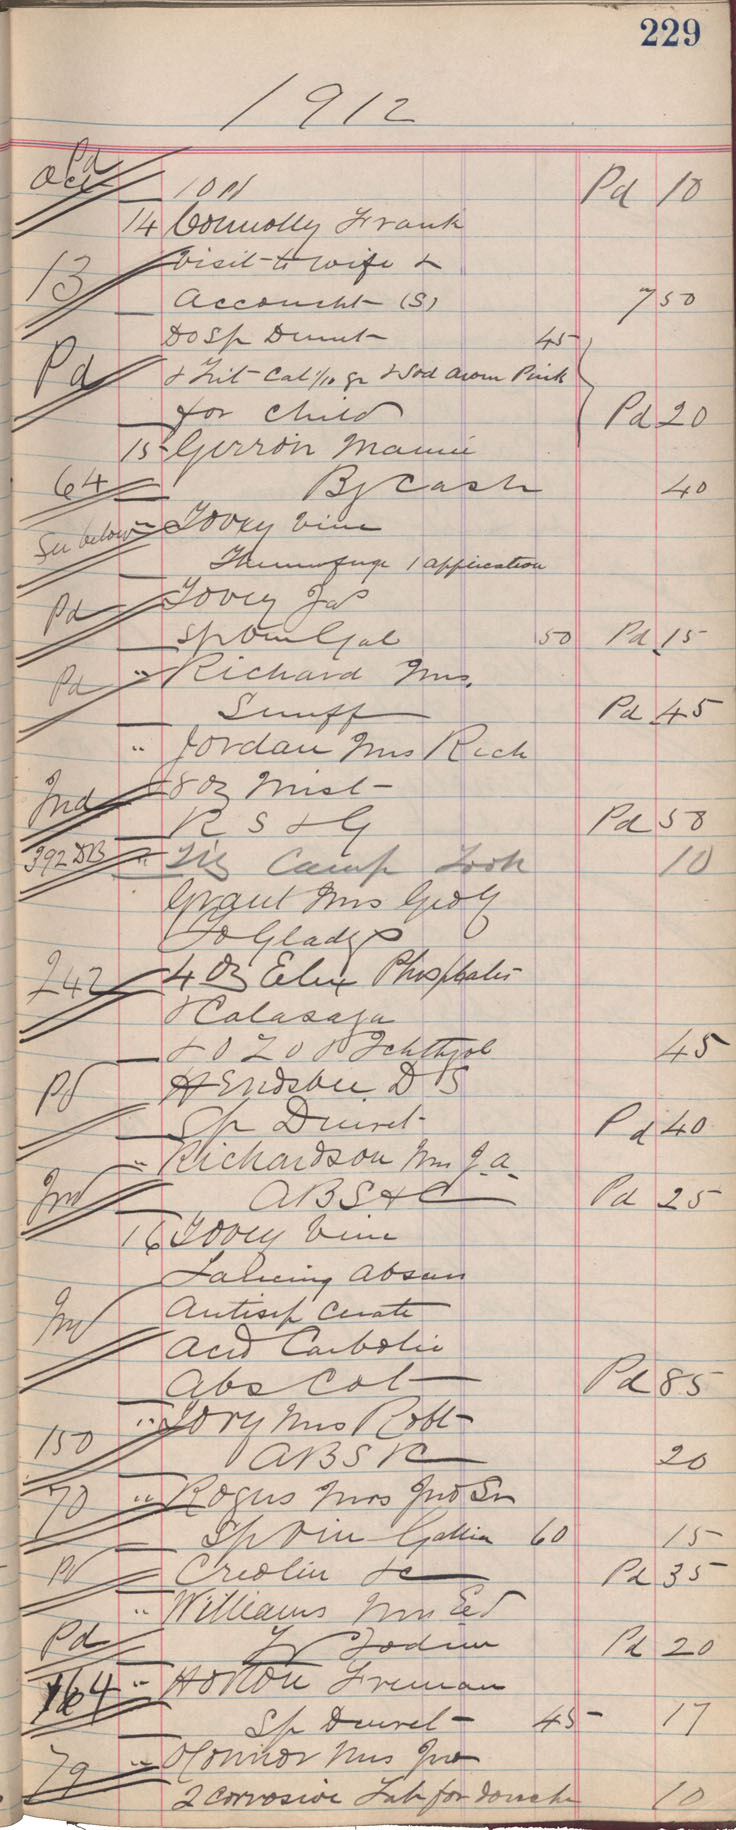 229
1912
Pd
Oct 10 Pd 10
14 Connolly Frank
13 Visit to wife &
Accoucht (S) 7 50
Do Sp 45
Pd & Trit Cal 1/10 gr & Sod arom Pink
for child Pd 20
15 Gerron Mamie
64 By Cash 40
See below " Tovey Vine
1 application
Pd Tovey Jas
Sp Vin Gal 50 Pd 15
Pd " Richard Mrs.
Snuff Pd 45
" Jordan Mrs Rich
8 oz Mist
R S & G Pd 50
392 DB " Camp 10
Grant Mrs Geo
To Gladys
242 4 oz Elix Phosphates
& Calasaya
& Ichthyol 45
Pd D S
Sp Pd 40
" Richardson Mrs J.A.
A B S & C Pd 25
16 Tovey Vine
Absor
Antisep Cerate
Acid Carbolic
Abs Cot Pd 85
150 " Tovey Mrs Robt
A B S & C 20
70 " Rogers Mrs Jno Sr
Sp Vin Gallici 60 15
Pd Creolin Pd 35
" Williams Mrs Ed
Pd Tr Iodine Pd 20
164 " Horton Freman
Sp 45 17
79 " O'Connor Mrs Jno
2 Corrosive Tab for douche 10